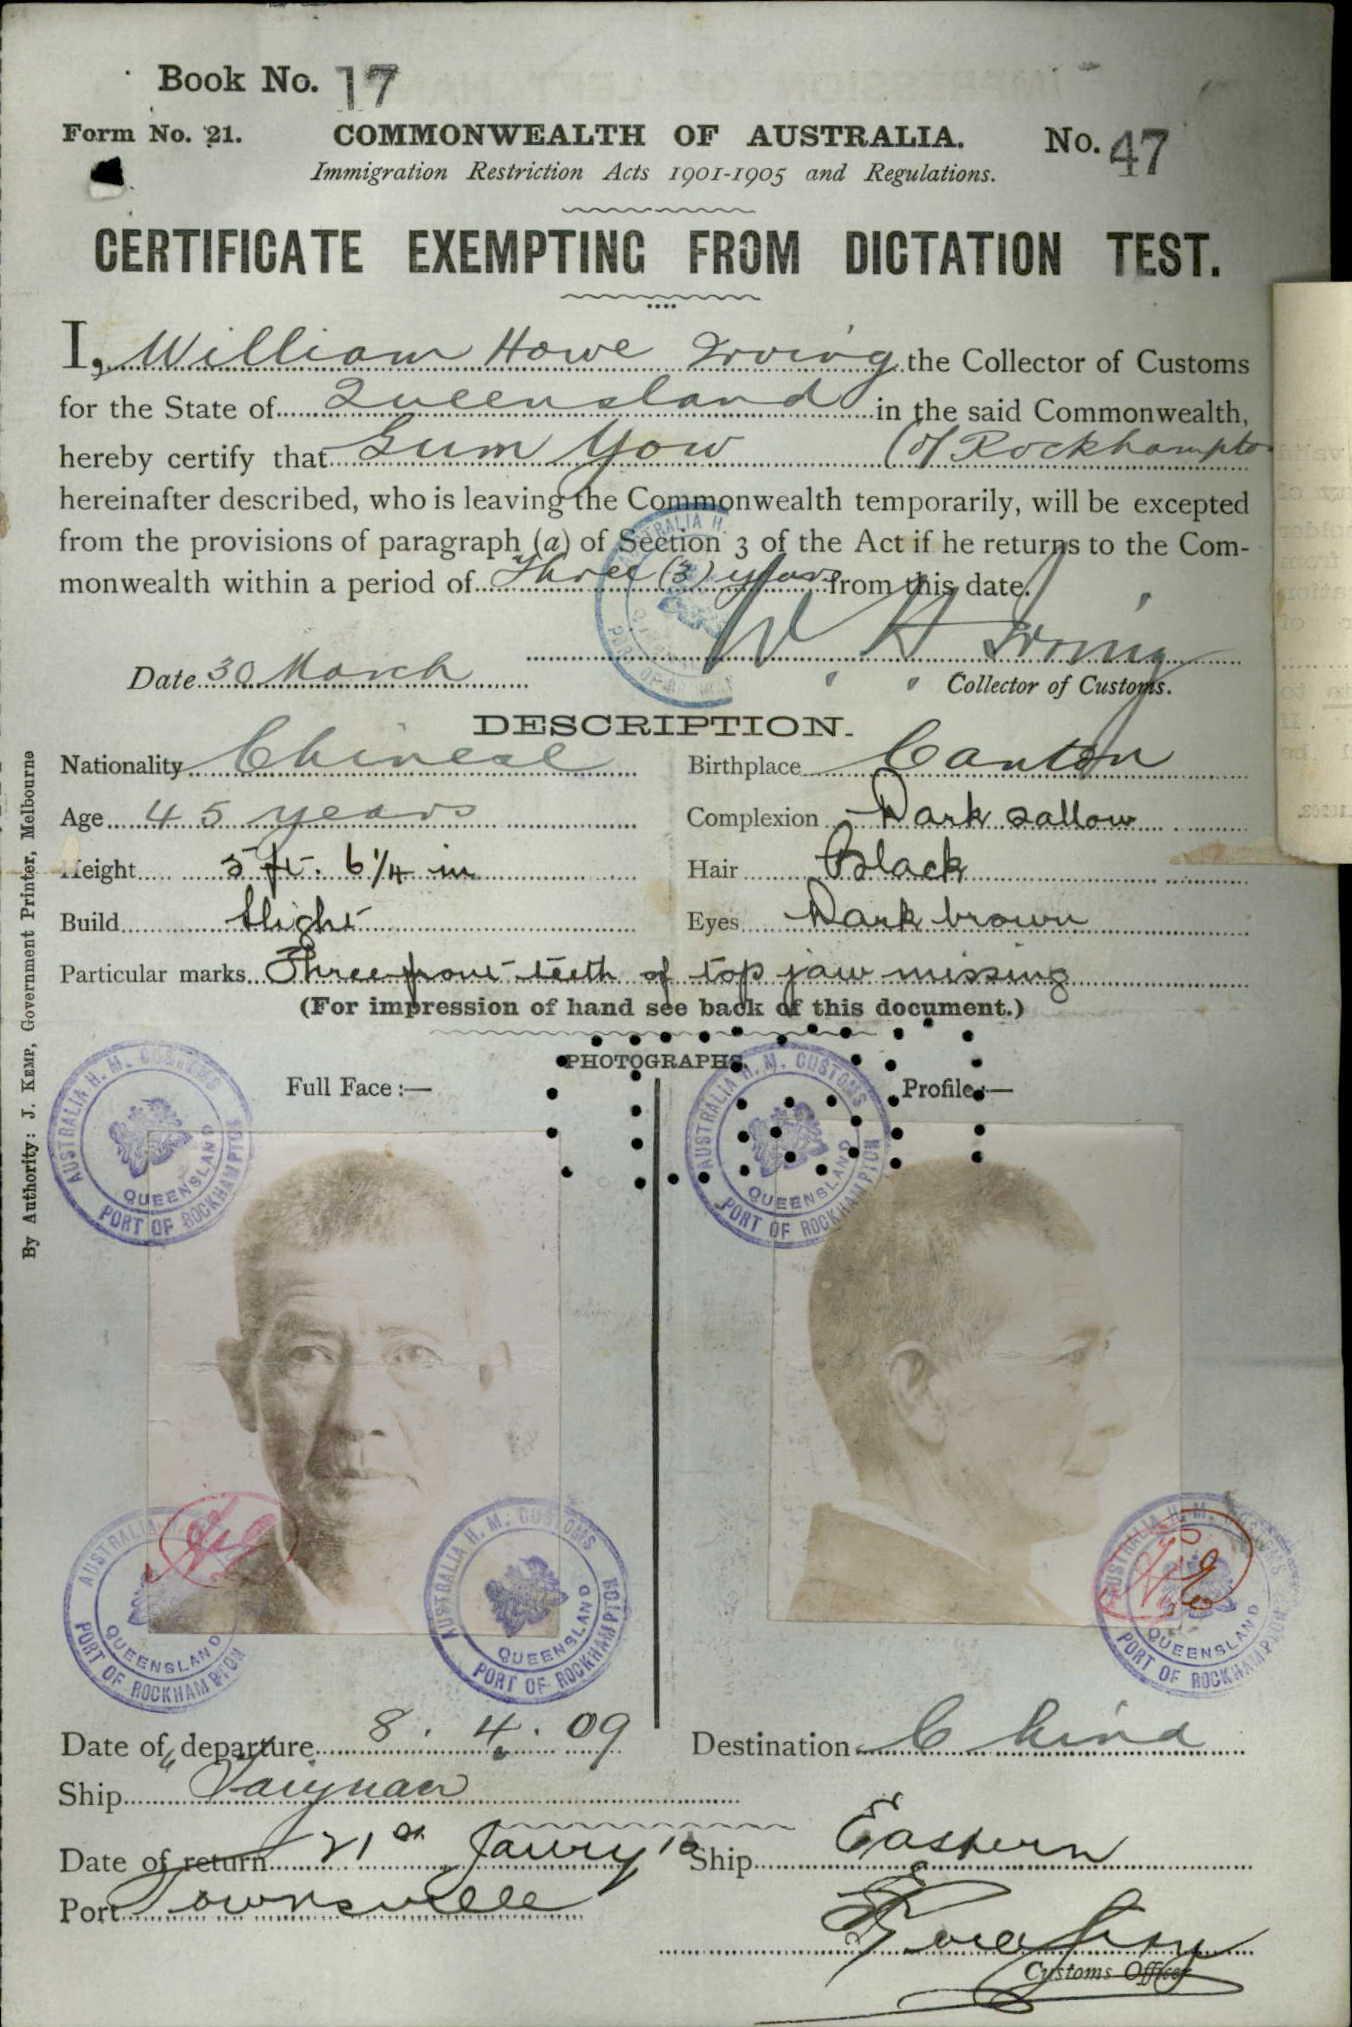 Book No. 17
Form No. 21. COMMONWEALTH OF AUSTRALIA. No. 47
Immigration Restriction Acts 1901-1905 and Regulations.
CERTIFICATE EXEMPTING FROM DICTATION TEST.
I, William Howe Irving the Collector of Customs
for the State of Queensland in the said Commonwealth,
hereby certify that Gum Yow (of Rockhampto
hereinafter described, who is leaving the Commonwealth temporarily, will be excepted
from the provisions of paragraph (a) of Section 3 of the Act if he returns to the Com-
monwealth within a period of Three (3) years from this date.
W H Irving
Date 30 March
Collector of Customs.
DESCRIPTION.
Nationality Chinese Birthplace Canton
Age 45 years Complexion Dark sallow
Height 5 ft. 6 1/4 in Hair Black
Build Slight Eyes Dark brown
Particular marks Three front teeth of top jaw missing
(For impression of hand see back of this document.)
PHOTOGRAPHS.
Full Face :— Profile :—
AUSTRALIA H. M. CUSTOMS QUEENSLAND PORT OF ROCKHAMPTON
AUSTRALIA H. M. CUSTOMS QUEENSLAND PORT OF ROCKHAMPTON
AUSTRALIA QUEENSLAND PORT OF ROCKHAMPTON
AUSTRALIA H. M. CUSTOMS QUEENSLAND PORT OF ROCKHAMPTON
AUSTRALIA H. M. QUEENSLAND PORT OF ROCKHAMPTON
Date of departure 8. 4. 09 Destination China
Ship "Taiyuan
Date of return 21st Janury 10 Ship Eastern
Port Townsville
Customs Officer
By Authority: J. KEMP, Government Printer, Melbourne